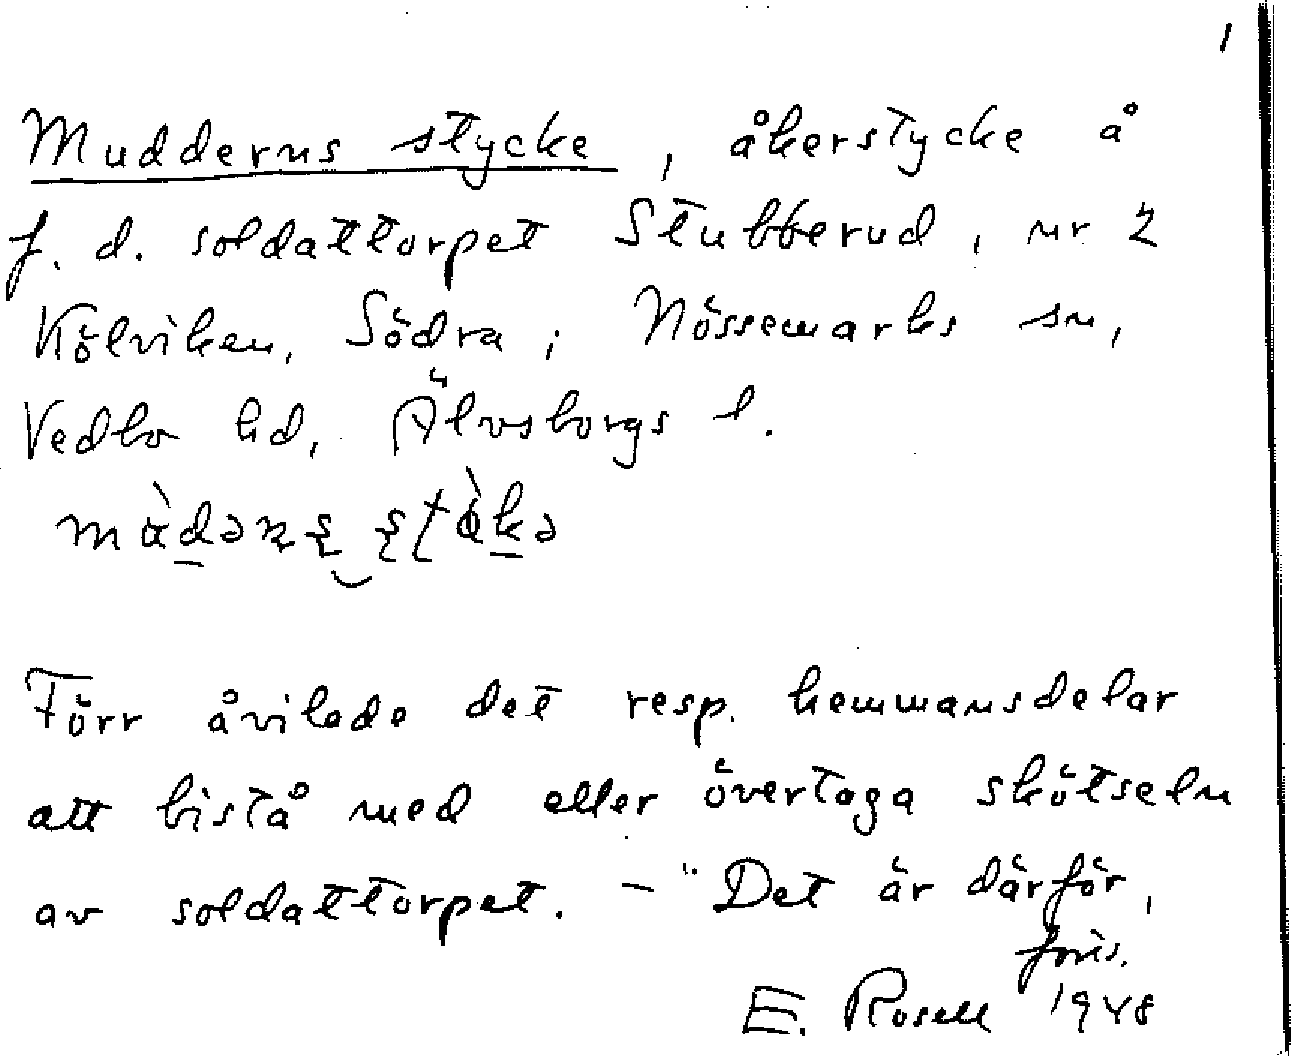 1
Mudderns stycke, åkerstycke å
f. d. soldattorpet Stubberud, nr 2
Kölviken, Södra; Nössemarks sn,
Vedbo hd, Älvsborgs l.
Förr åvilade det resp. hemmansdelar
att bistå med eller övertaga skötseln
av soldattorpet. – "Det är därför,
forts.
E. Rosell 1948